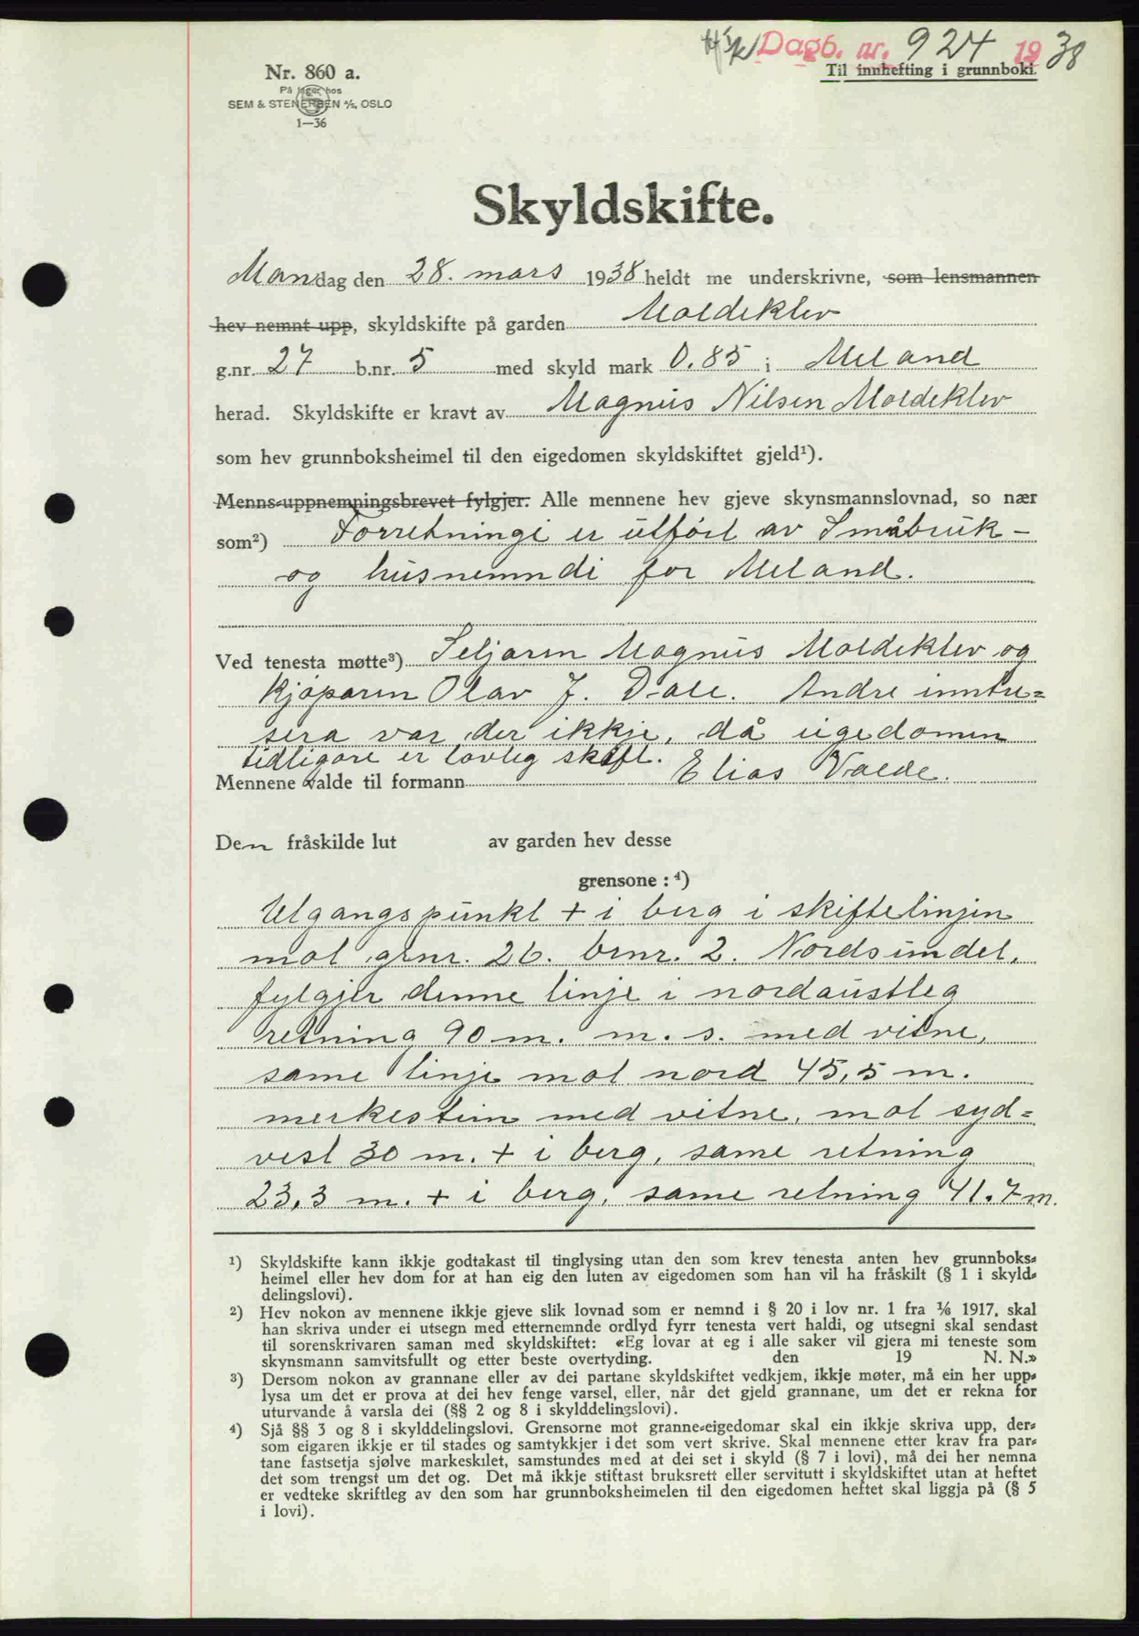 Dagb. nr. 924 1938
Til innhefting i grunnboki.
Nr. 860 a.
På lager hos
SEM & STENERSEN A/S, OSLO
1—36
Skyldskifte.
Mandag den 28. mars 1938 heldt me underskrivne, som lensmannen
hev nemnt upp, skyldskifte på garden Moldeklev
g.nr. 27 b.nr. 5 med skyld mark 0.85 i Meland
herad. Skyldskifte er kravt av Magnus Nilsen Moldeklev
som hev grunnboksheimel til den eigedomen skyldskiftet gjeld¹).
Menns-uppnemningsbrevet fylgjer. Alle mennene hev gjeve skynsmannslovnad, so nær
som²) Forretningi er utført av Småbruk-
og husnemndi for Meland.
Ved tenesta møtte³) Seljaren Magnus Moldeklev og
Kjøparen Olav J. Dale. Andre inntre=
sera var der ikkje, då eigedomen
tidligare er lovleg skift.
Mennene valde til formann Elias Valde.
Den fråskilde lut av garden hev desse
grensone : ⁴)
Utgangspunkt + i berg i skiftelinjen
mot grnr. 26. brnr. 2. Nordsundet,
fylgjer denne linje i nordaustleg
retning 90 m. m. s. med vitne,
same linje mot nord 45,5 m.
merkestein med vitne, mot syd=
vest 30 m. + i berg, same retning
23,3 m. + i berg, same retning 41.7 m.
¹) Skyldskifte kann ikkje godtakast til tinglysing utan den som krev tenesta anten hev grunnboks-
heimel eller hev dom for at han eig den luten av eigedomen som han vil ha fråskilt (§ 1 i skyld-
delingslovi).
²) Hev nokon av mennene ikkje gjeve slik lovnad som er nemnd i § 20 i lov nr. 1 fra ⅙ 1917, skal
han skriva under ei utsegn med etternemnde ordlyd fyrr tenesta vert haldi, og utsegni skal sendast
til sorenskrivaren saman med skyldskiftet: «Eg lovar at eg i alle saker vil gjera mi teneste som
skynsmann samvitsfullt og etter beste overtyding. den 19 N. N.»
³) Dersom nokon av grannane eller av dei partane skyldskiftet vedkjem, ikkje møter, må ein her upp-
lysa um det er prova at dei hev fenge varsel, eller, når det gjeld grannane, um det er rekna for
uturvande å varsla dei (§§ 2 og 8 i skylddelingslovi).
⁴) Sjå §§ 3 og 8 i skylddelingslovi. Grensorne mot granne-eigedomar skal ein ikkje skriva upp, der-
som eigaren ikkje er til stades og samtykkjer i det som vert skrive. Skal mennene etter krav fra par-
tane fastsetja sjølve markeskilet, samstundes med at dei set i skyld (§ 7 i lovi), må dei her nemna
det som trengst um det og. Det må ikkje stiftast bruksrett eller servitutt i skyldskiftet utan at heftet
er vedteke skriftleg av den som har grunnboksheimelen til den eigedomen heftet skal liggja på (§ 5
i lovi).